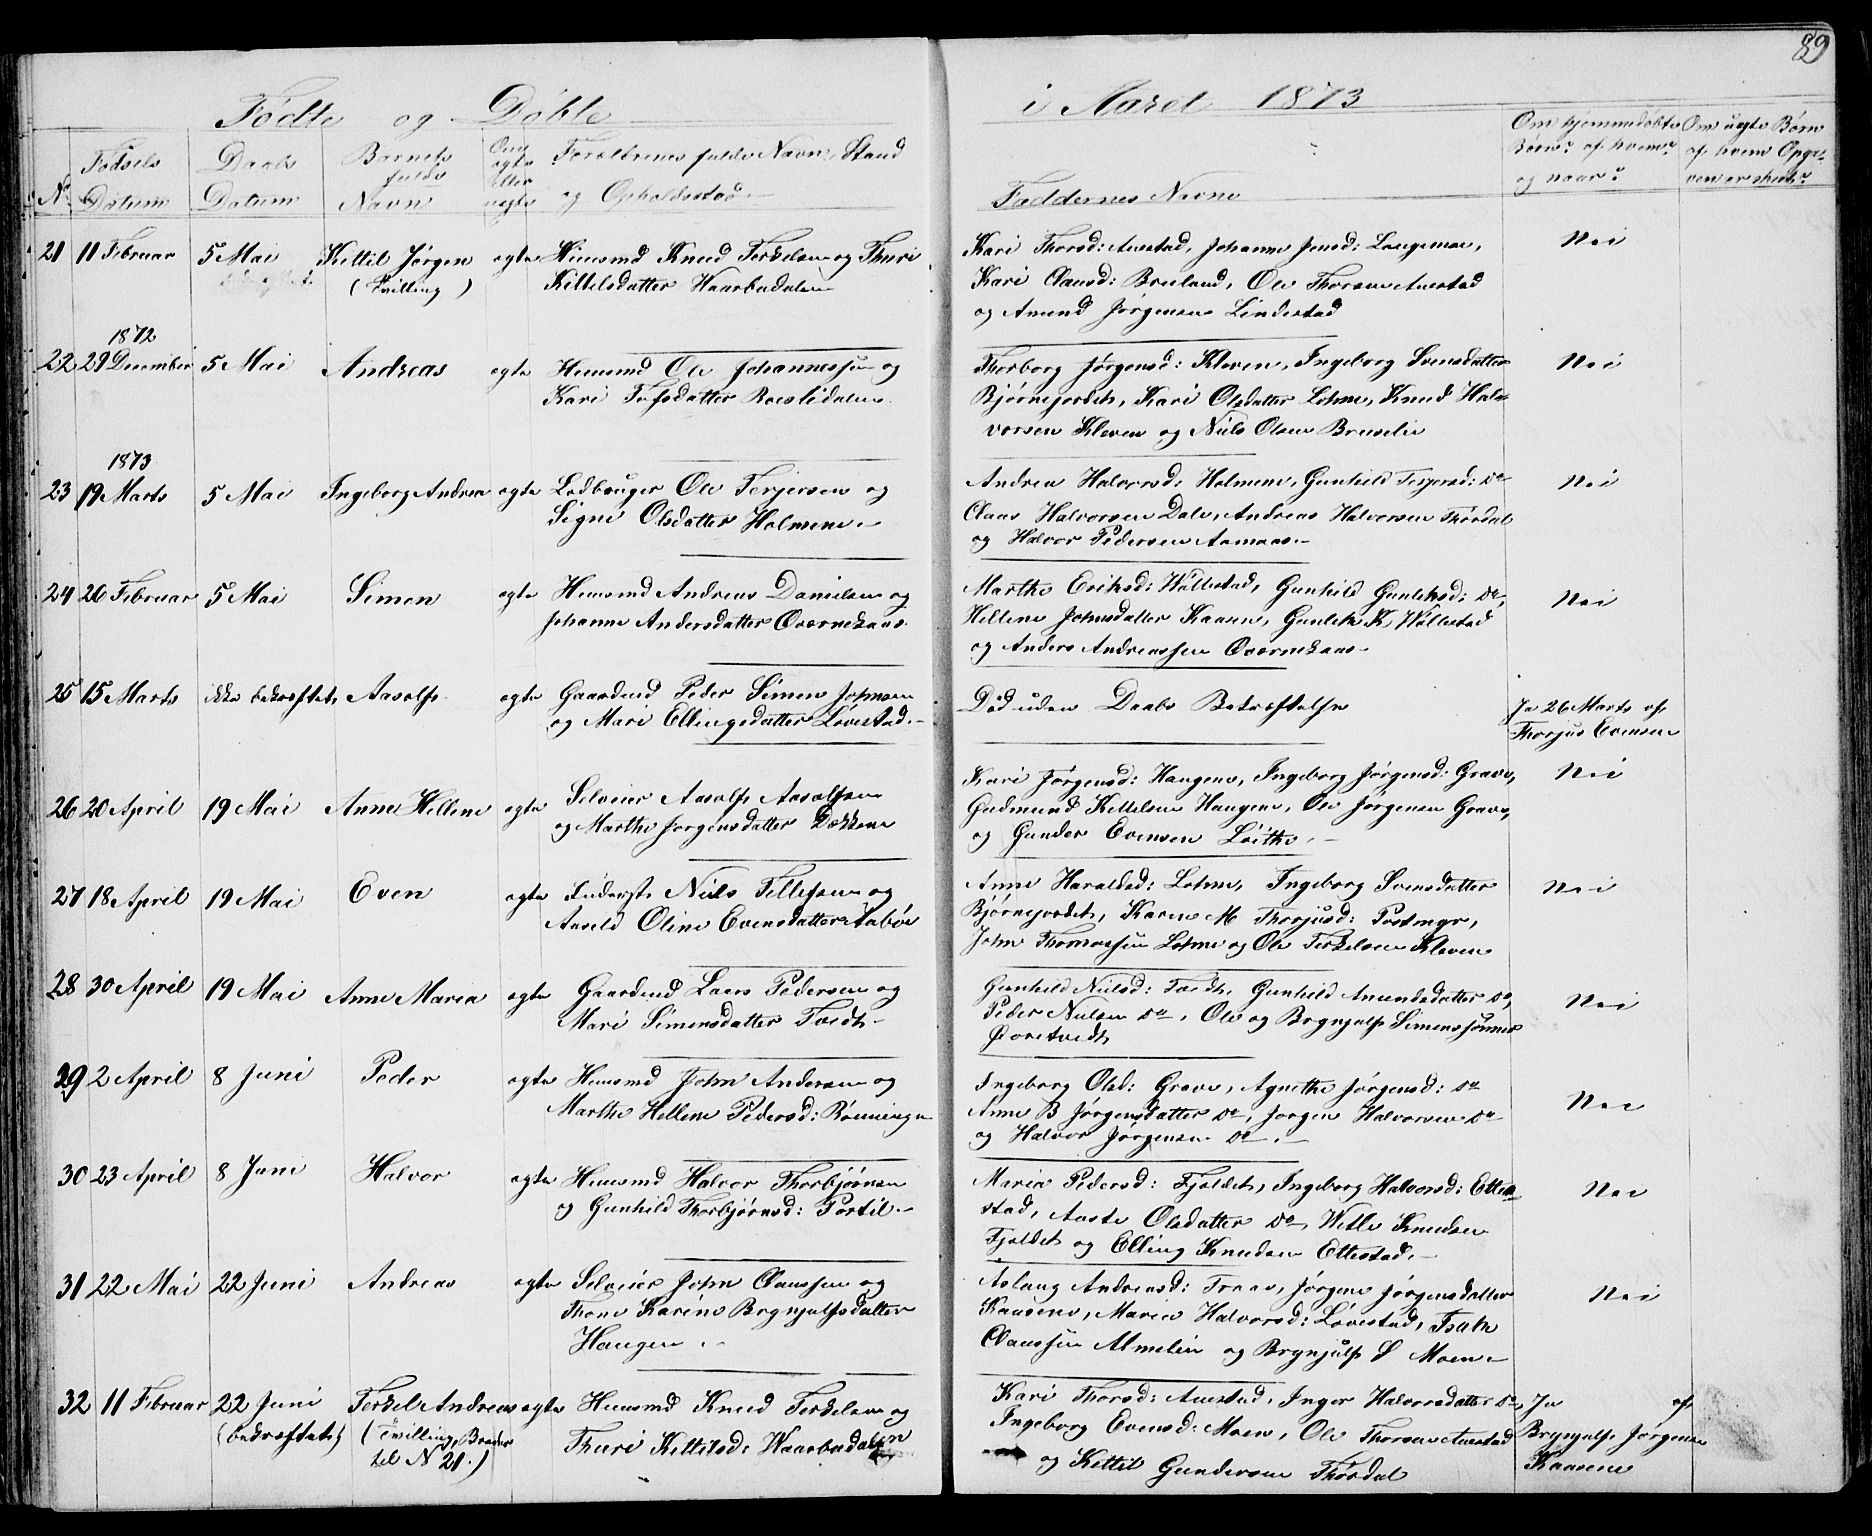 89
Fødte og Døbte i Aaret 1873
No Fødsels Datum
Daabs Datum
Barnets fulde Navn
Om ægte eller uægte
Forældrenes fulde Navn, Stand
og Opholdsstad
Faddernes Navne
Om hjemmedøbte
Børn: af hvem
og naar
Om uægte Børn
af hvem Opga-
ven er skeet
21 11 Februar 5 Mai Kittil Jørgen ægte Huusmd Knud Terkelsen og Thuri
(Tvilling) Kittelsdatter Haarbudalen
Kari Thorsd: Auestad, Johanne Jensd: Langemoe, Nei
Kari Clausd: Breiland, Ole Thorsen Auestad
og Anund Jørgensen Lindestad
1872
22 29 December 5 Mai Andreas ægte Huusmd Ole Johannessen og
Kari Tofsdatter
Thorborg Jørgensd: Kleven, Ingeborg Svensdatter Nei
Bjørnejordet, Kari Olsdatter Lohne, Knud Hal-
vorsen Kleven og Niels Olsen Bruselie
1873
23 19 Marts 5 Mai Ingeborg Andrea ægte Lodbruger Ole Terjersen og
Signe Olsdatter Holmene
Andrea Halvorsd: Holmene, Gunhild Terjersd: Do Nei
Claus Halvorsen Dale, Andreas Halvorsen Thørdal
og Halvor Pedersen Aamaas
24 26 Februar 5 Mai Simen ægte Huusmd Andreas Danielsen og
Johanne Andersdatter Ovornekaas
Marthe Eriksd: Wållestad, Gunhild Gunleksd: Do, Nei
Hellene Johnsdatter Kaasen, Gunlek K. Wållestad
og Anders Andreassen Ovornekaas
25 15 Marts ikke bekræftet Aasolf ægte Gaardmd Peder Simen Johnsen
og Mari Ellingsdatter Løvestad
Død uden Daabs Bekræftelse Ja 26 Marts af
Thorjus Evensen
26 20 April 19 Mai Anne Hellene ægte Selveier Aasolf Aasolfsen
og Marthe Jørgensdatter Bakken
Kari Jørgensd: Haugene, Ingeborg Jørgensd: Grave, Nei
Gudmund Kittelsen Haugene, Ole Jørgensen Grave,
og Gunder Evensen Løithe
27 18 April 19 Mai Even ægte Inderst Niels Tellefsen og
Aaseld Oline Evensdatter Aabøe
Anne Haraldsd: Lohne, Ingeborg Svensdatter Nei
Bjørnejordet, Karen M Thorjusd: Postmyr,
John Thomassen Lohne og Ole Terkelsen Kleven
28 30 April 19 Mai Anne Maria ægte Gaardmd Lars Pedersen og
Mari Simensdatter Tvedt
Gunhild Nielsd: Tvedt, Gunhild Anundsdatter Do, Nei
Peder Nielsen Do, Ole og Brynjulf Simenssønner
29 2 April 8 Juni Peder ægte Huusmd John Andersen og
Marthe Hellene Pedersd: Rønningen
Ingeborg Olsd: Grave, Agnethe Jørgensd: Do
Anne B Jørgensdatter Do, Jørgen Halvorsen Do Nei
og Halvor Jørgensen Do
30 23 April 8 Juni Halvor ægte Huusmd Halvor Thorbjørnsen
og Gunhild Thorbjørnsd: Portil
Maria Pedersd: Fjeldet, Ingeborg Halvorsd: Ette- Nei
stad, Aaste Olsdatter Do, Wetle Knudsen
Fjeldet og Elling Knudsen Ettestad
31 22 Mai 22 Juni Andreas ægte Selveier John Clausen og
Thone Karine Brynjulfsdatter
Haugen
Aslaug Andreasd: Traae, Jørgene Jørgensdatter Nei
Kaasene, Maria Halvorsd: Løvestad, Isak
Claussen Almelien og Brynjulf S Moen
32 11 Februar 22 Juni Terkel Andreas ægte Huusmd Knud Terkelsen og
(bekræftet) (Tvilling, Broder Thuri Kittilsd: Haarbudalen
til No 21.)
Kari Thorsd: Auestad, Inger Halvorsdatter Do, Ja af
Ingeborg Evensd: Moen, Ole Thorsen Auestad Brynjulf Jørgensen
og Kittil Gundersen Thørdal Kaasene